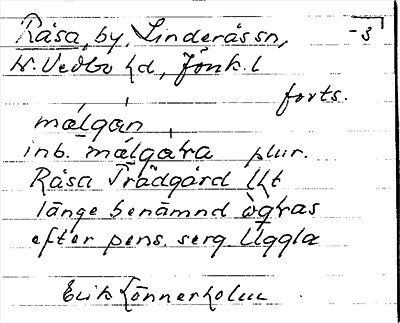 Råsa, by, Linderås sn, -3
N. Vedbo hd, Jönk. l
forts.
mǻlgán
inb. mǻlgara plur.
Råsa Trädgård
länge benämnd ògras
efter pens. serg. Uggla
Erik Lönnerholm